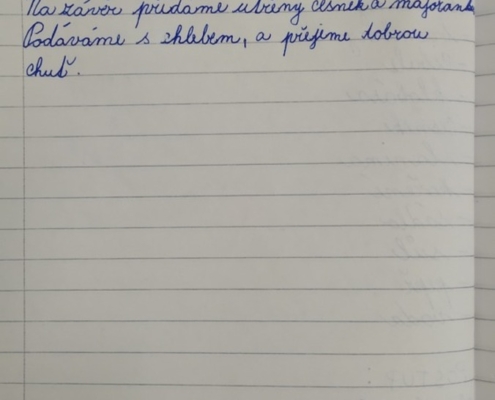 Na závěr přidáme utřený česnek a majoránk
Podáváme s chlebem, a přejeme dobrou
chuť.